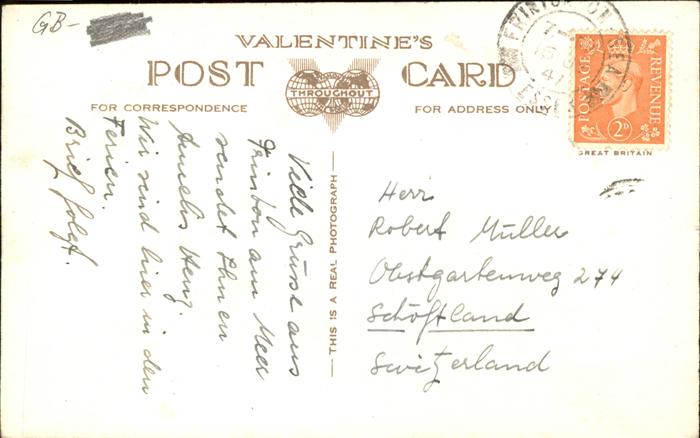 GB-
VALENTINE'S
POST CARD
THROUGHOUT
FOR CORRESPONDENCE
FOR ADDRESS ONLY
POSTAGE
REVENUE
2D
GREAT BRITAIN
THIS IS A REAL PHOTOGRAPH
Viele Grüsse aus
Frinton am Meer
sendet Ihnen
Wir sind hier in den
Ferien.
Brief folgt.
Herr
Robert Müller
Obstgartenweg 274
Schöftland
Switzerland